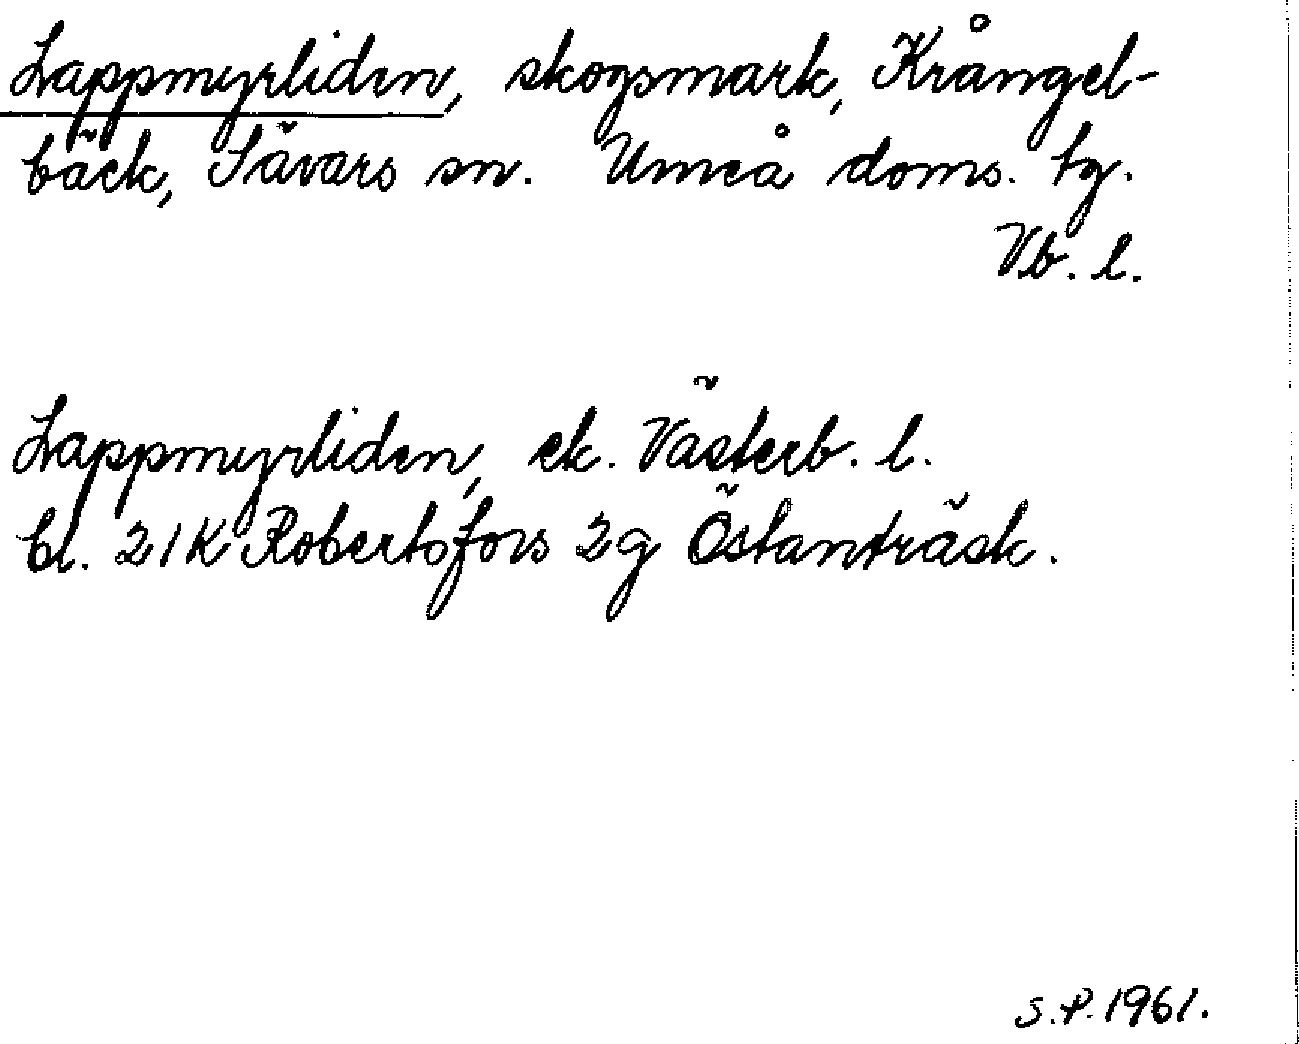 Lappmyrliden, skogsmark, Krångel-
bäck, Sävars sn. Umeå doms. tg.
Vb. l.
Lappmyrliden, ek. Västerb. l.
bl. 21K Robertsfors 2g Östanträsk.
S.P. 1961.